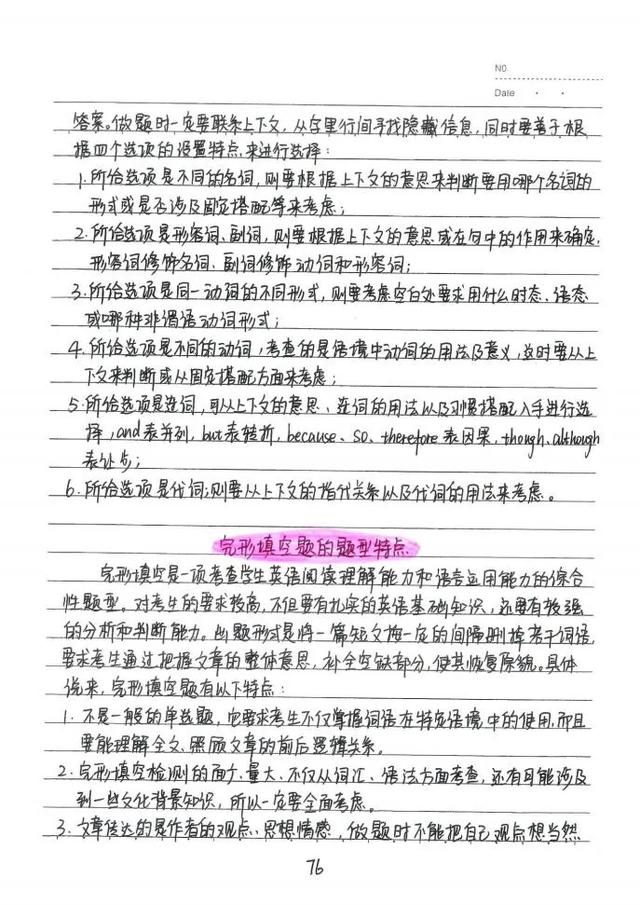 NO.
Date
答案。做题时一定要联系上下文，从字里行间寻找隐藏信息，同时要善于根
据四个选项的设置特点来进行选择：
1.所给选项是不同的名词，则要根据上下文的意思来判断要用哪个名词的
形式或是否涉及固定搭配等来考虑；
2.所给选项是形容词、副词，则要根据上下文的意思或在句中的作用来确定，
形容词修饰名词、副词修饰动词和形容词；
3.所给选项是同一动词的不同形式，则要考虑空白处要求用什么时态、语态
或哪种非谓语动词形式；
4.所给选项是不同的动词，考查的是语境中动词的用法及意义，这时要从上
下文来判断或从固定搭配方面来考虑；
5.所给选项是连词，可从上下文的意思、连词的用法以及习惯搭配入手进行选
择，and表并列，but表转折，because、so、therefore表因果，though、although
表让步；
6.所给选项是代词；则要从上下文的指代关系以及代词的用法来考虑。
完形填空题的题型特点
完形填空是一项考查学生英语阅读理解能力和语言运用能力的综合
性题型。对考生的要求极高，不但要有扎实的英语基础知识，还要有较强
的分析和判断能力。出题形式是将一篇短文按一定的间隔删掉若干词语，
要求考生通过把握文章的整体意思，补全空缺部分，使其恢复原貌。具体
说来，完形填空题有以下特点：
1.不是一般的单选题，它要求考生不仅掌握词语在特定语境中的使用，而且
要能理解全文、照顾文章的前后逻辑关系。
2.完形填空检测的面广、量大、不仅从词汇、语法方面考查，还有可能涉及
到一些文化背景知识，所以一定要全面考虑。
3.文章传达的是作者的观点、思想情感，做题时不能把自己观点想当然
76